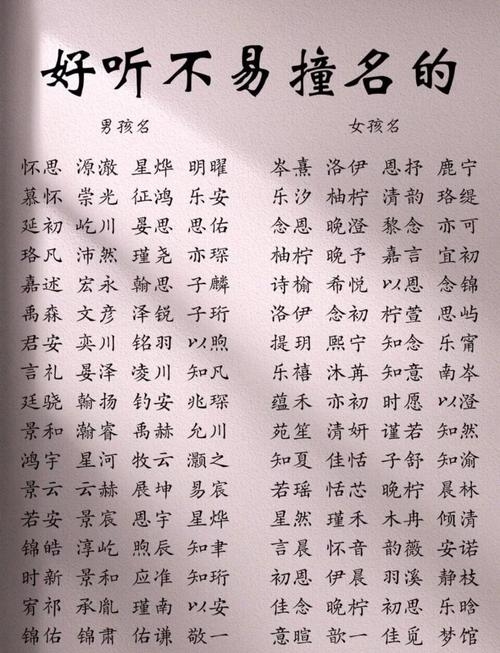 好听不易撞名的
男孩名 女孩名
怀思 源澈 星烨 明曜 岑熹 洛伊 思抒 鹿宁
慕怀 崇光 征鸿 乐安 乐汐 柚柠 清韵 珞缇
延初 屹川 晏思 思佑 念恩 晚澄 黎念 亦可
珞凡 沛然 瑾尧 亦琛 柚柠 晚予 嘉言 宜初
嘉述 宏永 翰思 子麟 诗榆 希悦 以恩 念锦
禹森 文彦 泽锐 子珩 洛伊 念初 柠萱 思屿
君安 奕川 铭羽 以煦 提玥 熙宁 知念 乐甯
言礼 晏泽 凌川 知凡 乐禧 沐苒 知意 南岑
廷骁 翰扬 钧安 兆琛 蕴禾 亦初 时愿 以澄
景和 瀚睿 禹赫 允川 苑笙 清妍 谨若 知然
鸿宇 星河 牧云 灏之 知夏 佳恬 子舒 知渝
景云 云赫 展坤 易宸 若瑶 恬芯 晚柠 晨林
若安 景宸 思宇 星烨 星然 瑾禾 木冉 倾清
锦皓 淳屹 煦辰 知聿 言晨 怀音 韵薇 安诺
时新 景和 应准 知珩 初思 伊晨 羽溪 静枝
宥祁 承胤 瑾南 以安 佳念 晚柠 初思 乐晗
锦佑 锦肃 佑谦 敬一 意暄 歆一 佳觅 梦馆